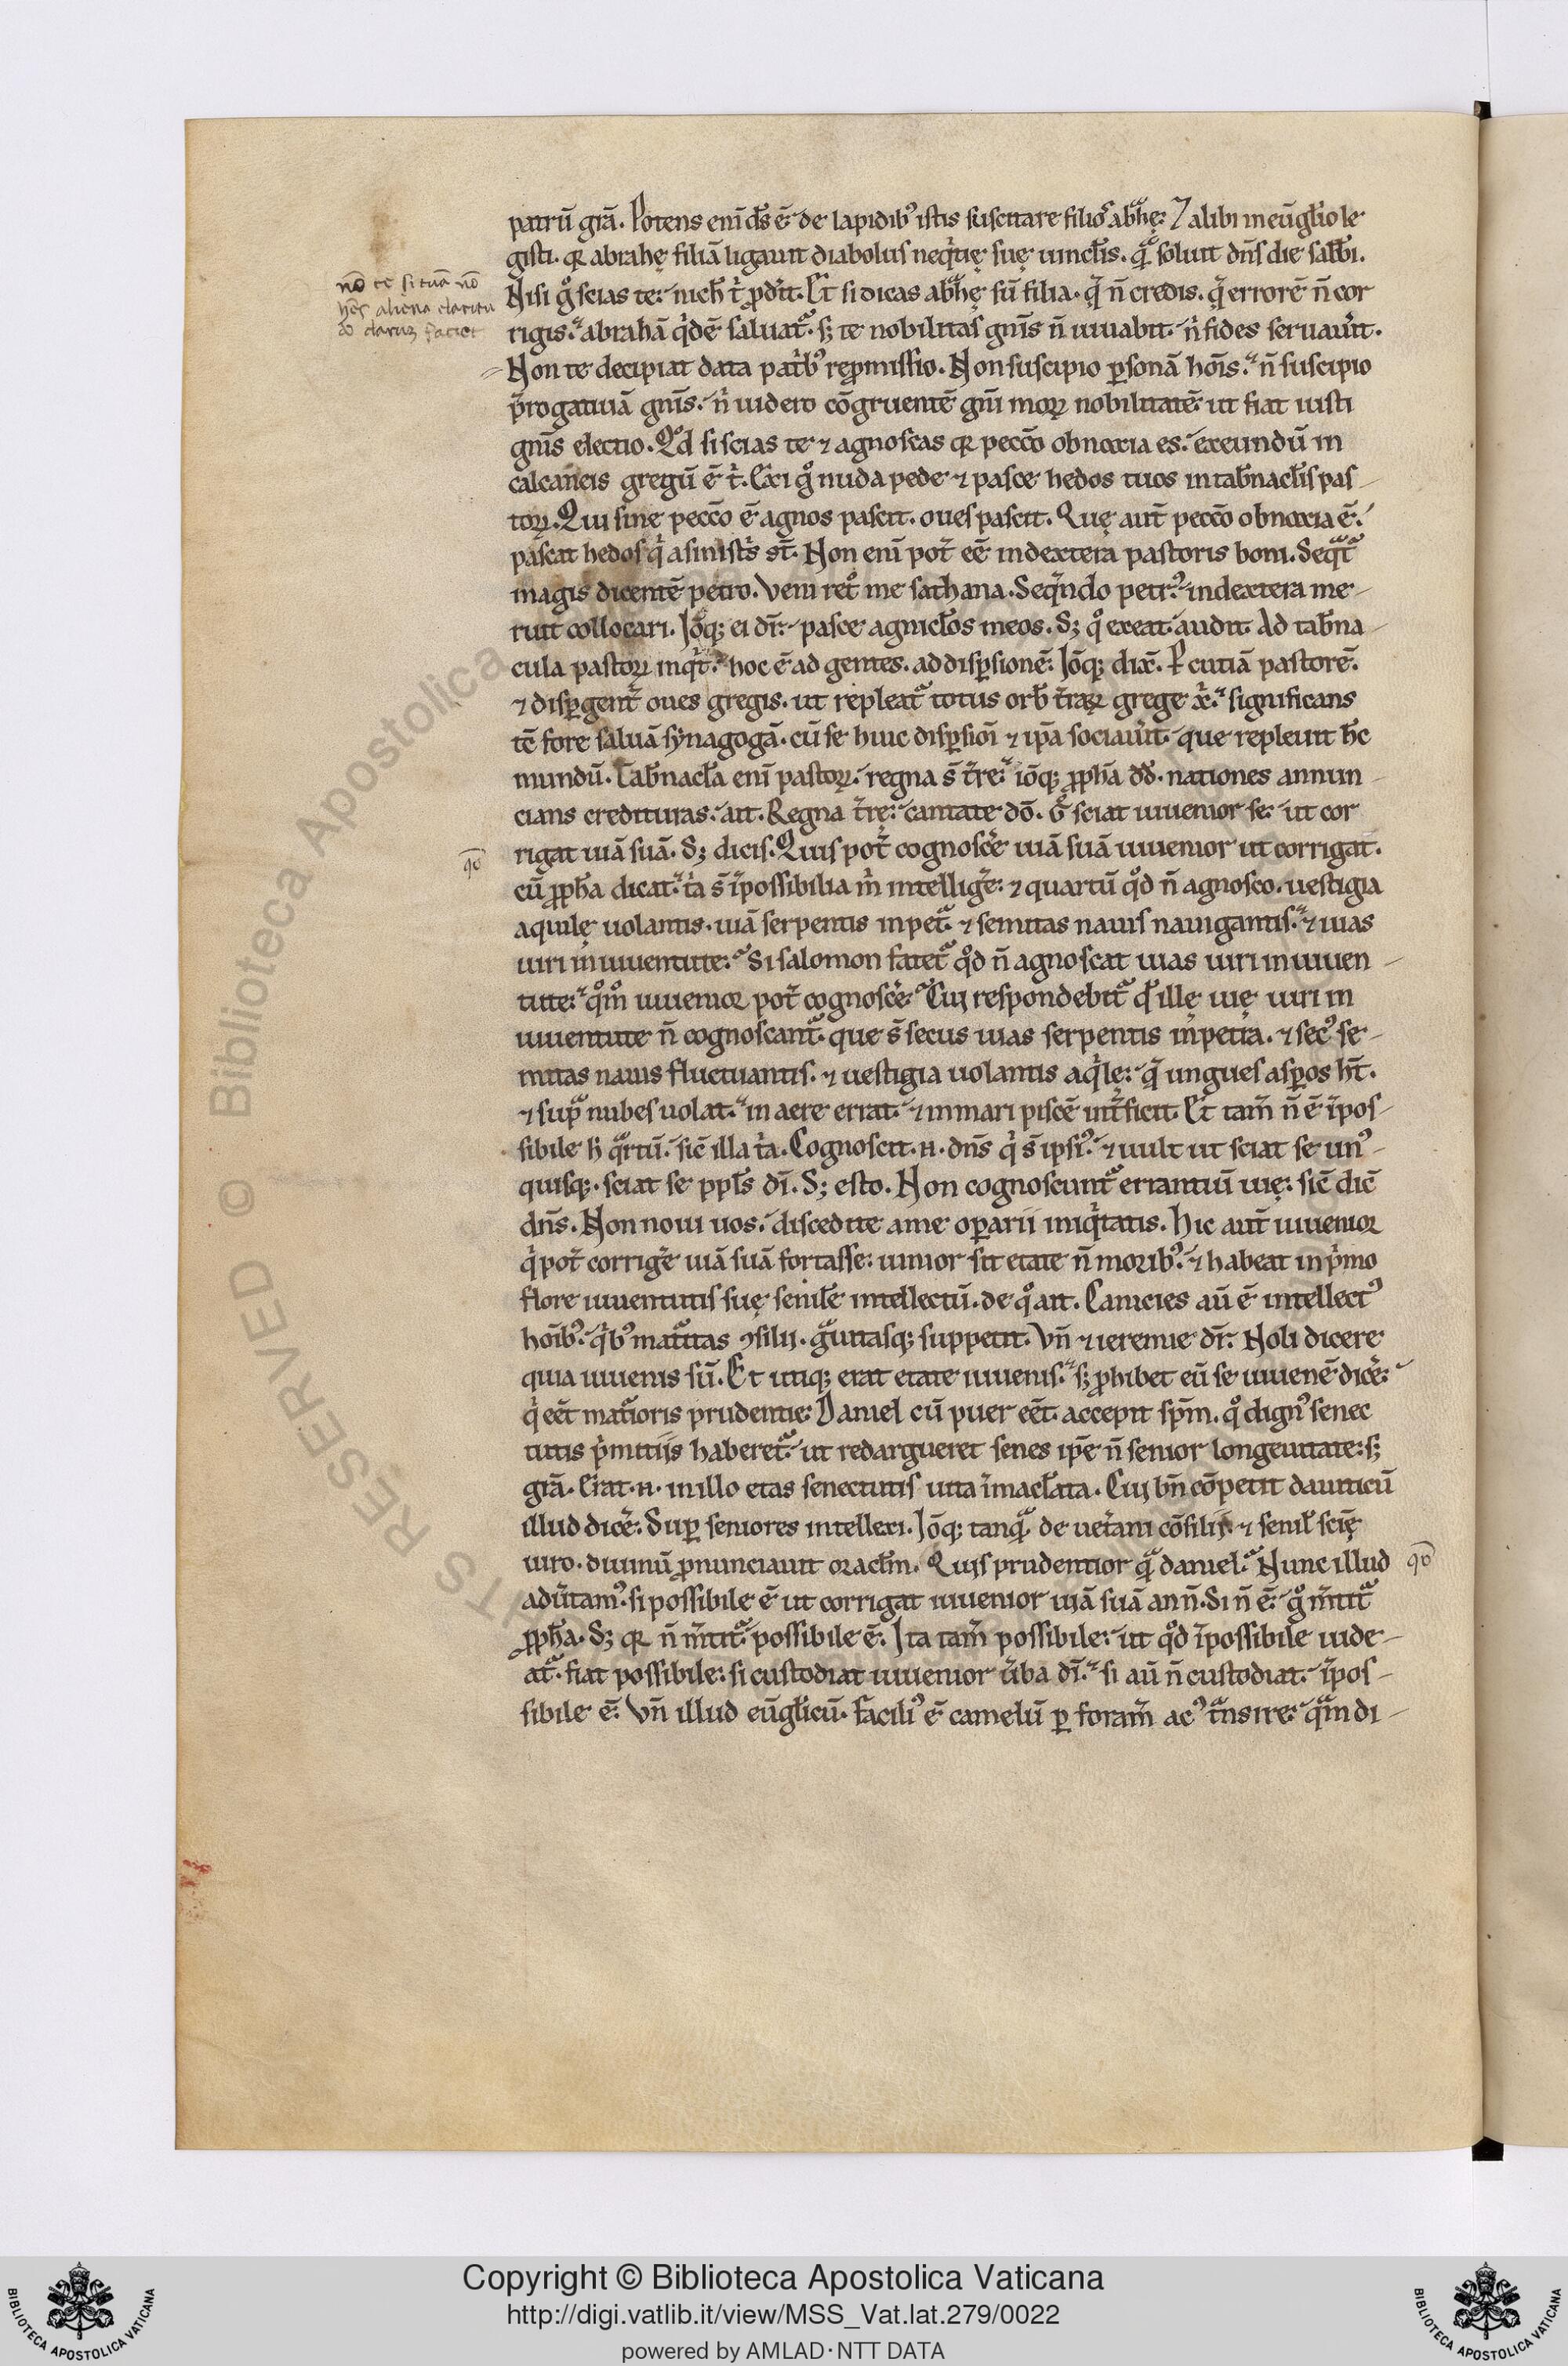 patrū grā. Potens enī ds̄ ē de lapidib; istis suscitare filios abhę. 7 alibi in eūglio le
gisti. qr abrahę filiā ligauit diabolus neqtię suę uincl̄is. qā soluit dn̄s die sabbi.
Nisi gͦ scias te. nich t̄ ꝓdit. Et si dicas abhę sū filia. q̄ n̄ credis. q̄ errorē n̄ cor
rigis. abrahā qͥdē saluat᷑. sꝫ te nobilitas gn̄is n̄ iuuabit. nͥ fides seruauͥit.
Non te decipiat data patͥb; reꝓmissio. Non suscipio ꝑsonā hōis. n̄ suscipio
p̄rogatiuā gn̄is. nͥ uidero cōgruentē gn̄i moꝝ nobilitatē. ut fiat iusti
gn̄is electio. Qd si scias te ⁊ agnoscas qr pecc̄o obnoxia es. exeundū in
calcaneis gregū ē t̄. Exi gͦ nuda pede ⁊ pasce hedos tuos in tab̄nacl̄is pas
toꝝ. Qui sine pecc̄o ē agnos pascit. oues pascit. Quę aut̄ pecc̄o obnoxia ē.
pascat hedos qͥ a sinistͥs st̄. Non enī pot̄ eē in dextera pastoris boni. Seqͣt᷑
magis dicentē petro. Veni retͦ me sathana. Seqͣndo petr; in dextera me
ruit collocari. Iōqꝫ ei dr̄. pasce agnicl̄os meos. Sꝫ qͦ exeat audit. Ad tab̄na
cula pastoꝝ inqͥt. hoc ē ad gentes. ad disꝑsionē. Iōqꝫ dix̄. Pcutiā pastorē.
⁊ disꝑgent̄ oues gregis. ut repleat᷑ totus orb̄ t̄raꝝ grege xͥ. significans
tē fore saluā synagogā. cū se huic disꝑsiōi ⁊ ip̄a sociauͥit. que repleuit h̄c
mundū. Tab̄nacl̄a enī pastoꝝ. regna s̄ t̄re. iōqꝫ ꝓpha dd̄. nationes annun
cians credituras. ait. Regna t̄rę. cantate dō. Gͦ sciat iuuenior se. ut cor
rigat uiā suā. Sꝫ dicis. Quis pot̄ cognosc̄e uiā suā iuuenior ut corrigat.
cū ꝓpha dicat. tͥa s̄ īpossibilia mͥ intelliḡe. ⁊ quartū qͦd n̄ agnosco. uestigia
aquilę uolantis. uiā serpentis in pet᷑. ⁊ semitas nauis nauigantis. ⁊ uias
uiri in iuuentute. Si salomon fatet᷑ qͦd n̄ agnoscat uias uiri in iuuen
tute. qͦmͦ iuuenior pot̄ cognosc̄e. Cui respondebit᷑ qd̄ illę uię uiri in
iuuentute n̄ cognoscant᷑. que s̄ secus uias serpentis in petra. ⁊ sec; se
mitas nauis fluctuantis. ⁊ uestigia uolantis aqͥlę. q̄ ungues asꝑos ht̄.
⁊ supͣ nubes uolat. in aere errat. ⁊ in mari piscē int̄ficit. Et tam̄ n̄ ē īpos
sibile h̄ qͣrtū. sic̄ illa tͥa. Cognoscit .n. dn̄s qͥ s̄ ipsi;. ⁊ uult ut sciat se un;
quisqꝫ. sciat se ppl̄s dī. Sꝫ esto. Non cognoscunt᷑ errantiū uię. sic̄ dic̄
dn̄s. Non noui uos. discedite a me oꝑarii iniqͥtatis. Hic aut̄ iuuenior
qͥ pot̄ corriḡe uiā suā fortasse. iunior sit etate n̄ morib;. ⁊ habeat in pͥmo
flore iuuentutis suę senile intellectū. de qͦ ait. Canicies aū ē intellect;
hoīb;. qͥb; mat᷑itas ꝯsilii. gͣuitasqꝫ suppetit. Vn̄ ⁊ ieremie dr̄. Noli dicere
quia iuuenis sū. Et utiqꝫ erat etate iuuenis. sꝫ ꝓhibet eū se iuuenē dic̄e.
qͥ eēt mat᷑ioris prudentie. Daniel cū puer eēt. accepit sp̄m. qͦ dign; senec
tutis pͥmitiis haberet᷑. ut redargueret senes ip̄e n̄ senior longeuitate. sꝫ
grā. Erat .n. in illo etas senectutis uita īmacl̄ata. Cui bn̄ cōpetit dauiticū
illud dic̄e. Suꝑ seniores intellexi. Iōqꝫ tanqͣ de uet̄ani cōsilii ⁊ senil̄ sciē
uiro. diuinū ꝓnunciauit oracl̄m. Quis prudentior qͣ daniel. Nunc illud
adūtam;. si possibile ē ut corrigat iuuenior uiā suā an n̄. Si n̄ ē. gͦ m̄tit᷑
ꝓpha. Sꝫ qr n̄ m̄tit᷑. possibile ē. Ita tam̄ possibile. ut qͦd īpossibile uide
at᷑. fiat possibile. si custodiat iuuenior ūba dī. si aū n̄ custodiat. īpos
sibile ē. Vn̄ illud eūglicū. facili; ē camelū ꝑ foram̄ ac; tͣnsire. qͣm di
nō te si tuā nō
hēs aliena claritu
do claruꝫ faciet
qō
qō
© Biblioteca Apostolica
RIGHTS RESERVED
Copyright © Biblioteca Apostolica Vaticana
http://digi.vatlib.it/view/MSS_Vat.lat.279/0022
powered by AMLAD·NTT DATA
BIBLIOTECA APOSTOLICA VATICANA
BIBLIOTECA APOSTOLICA VATICANA